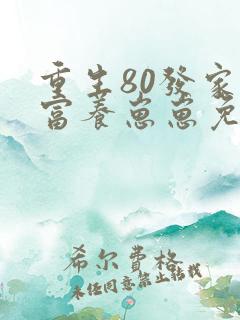 重生80發家
富養崽崽免
希尔費格
未任同意禁止转载